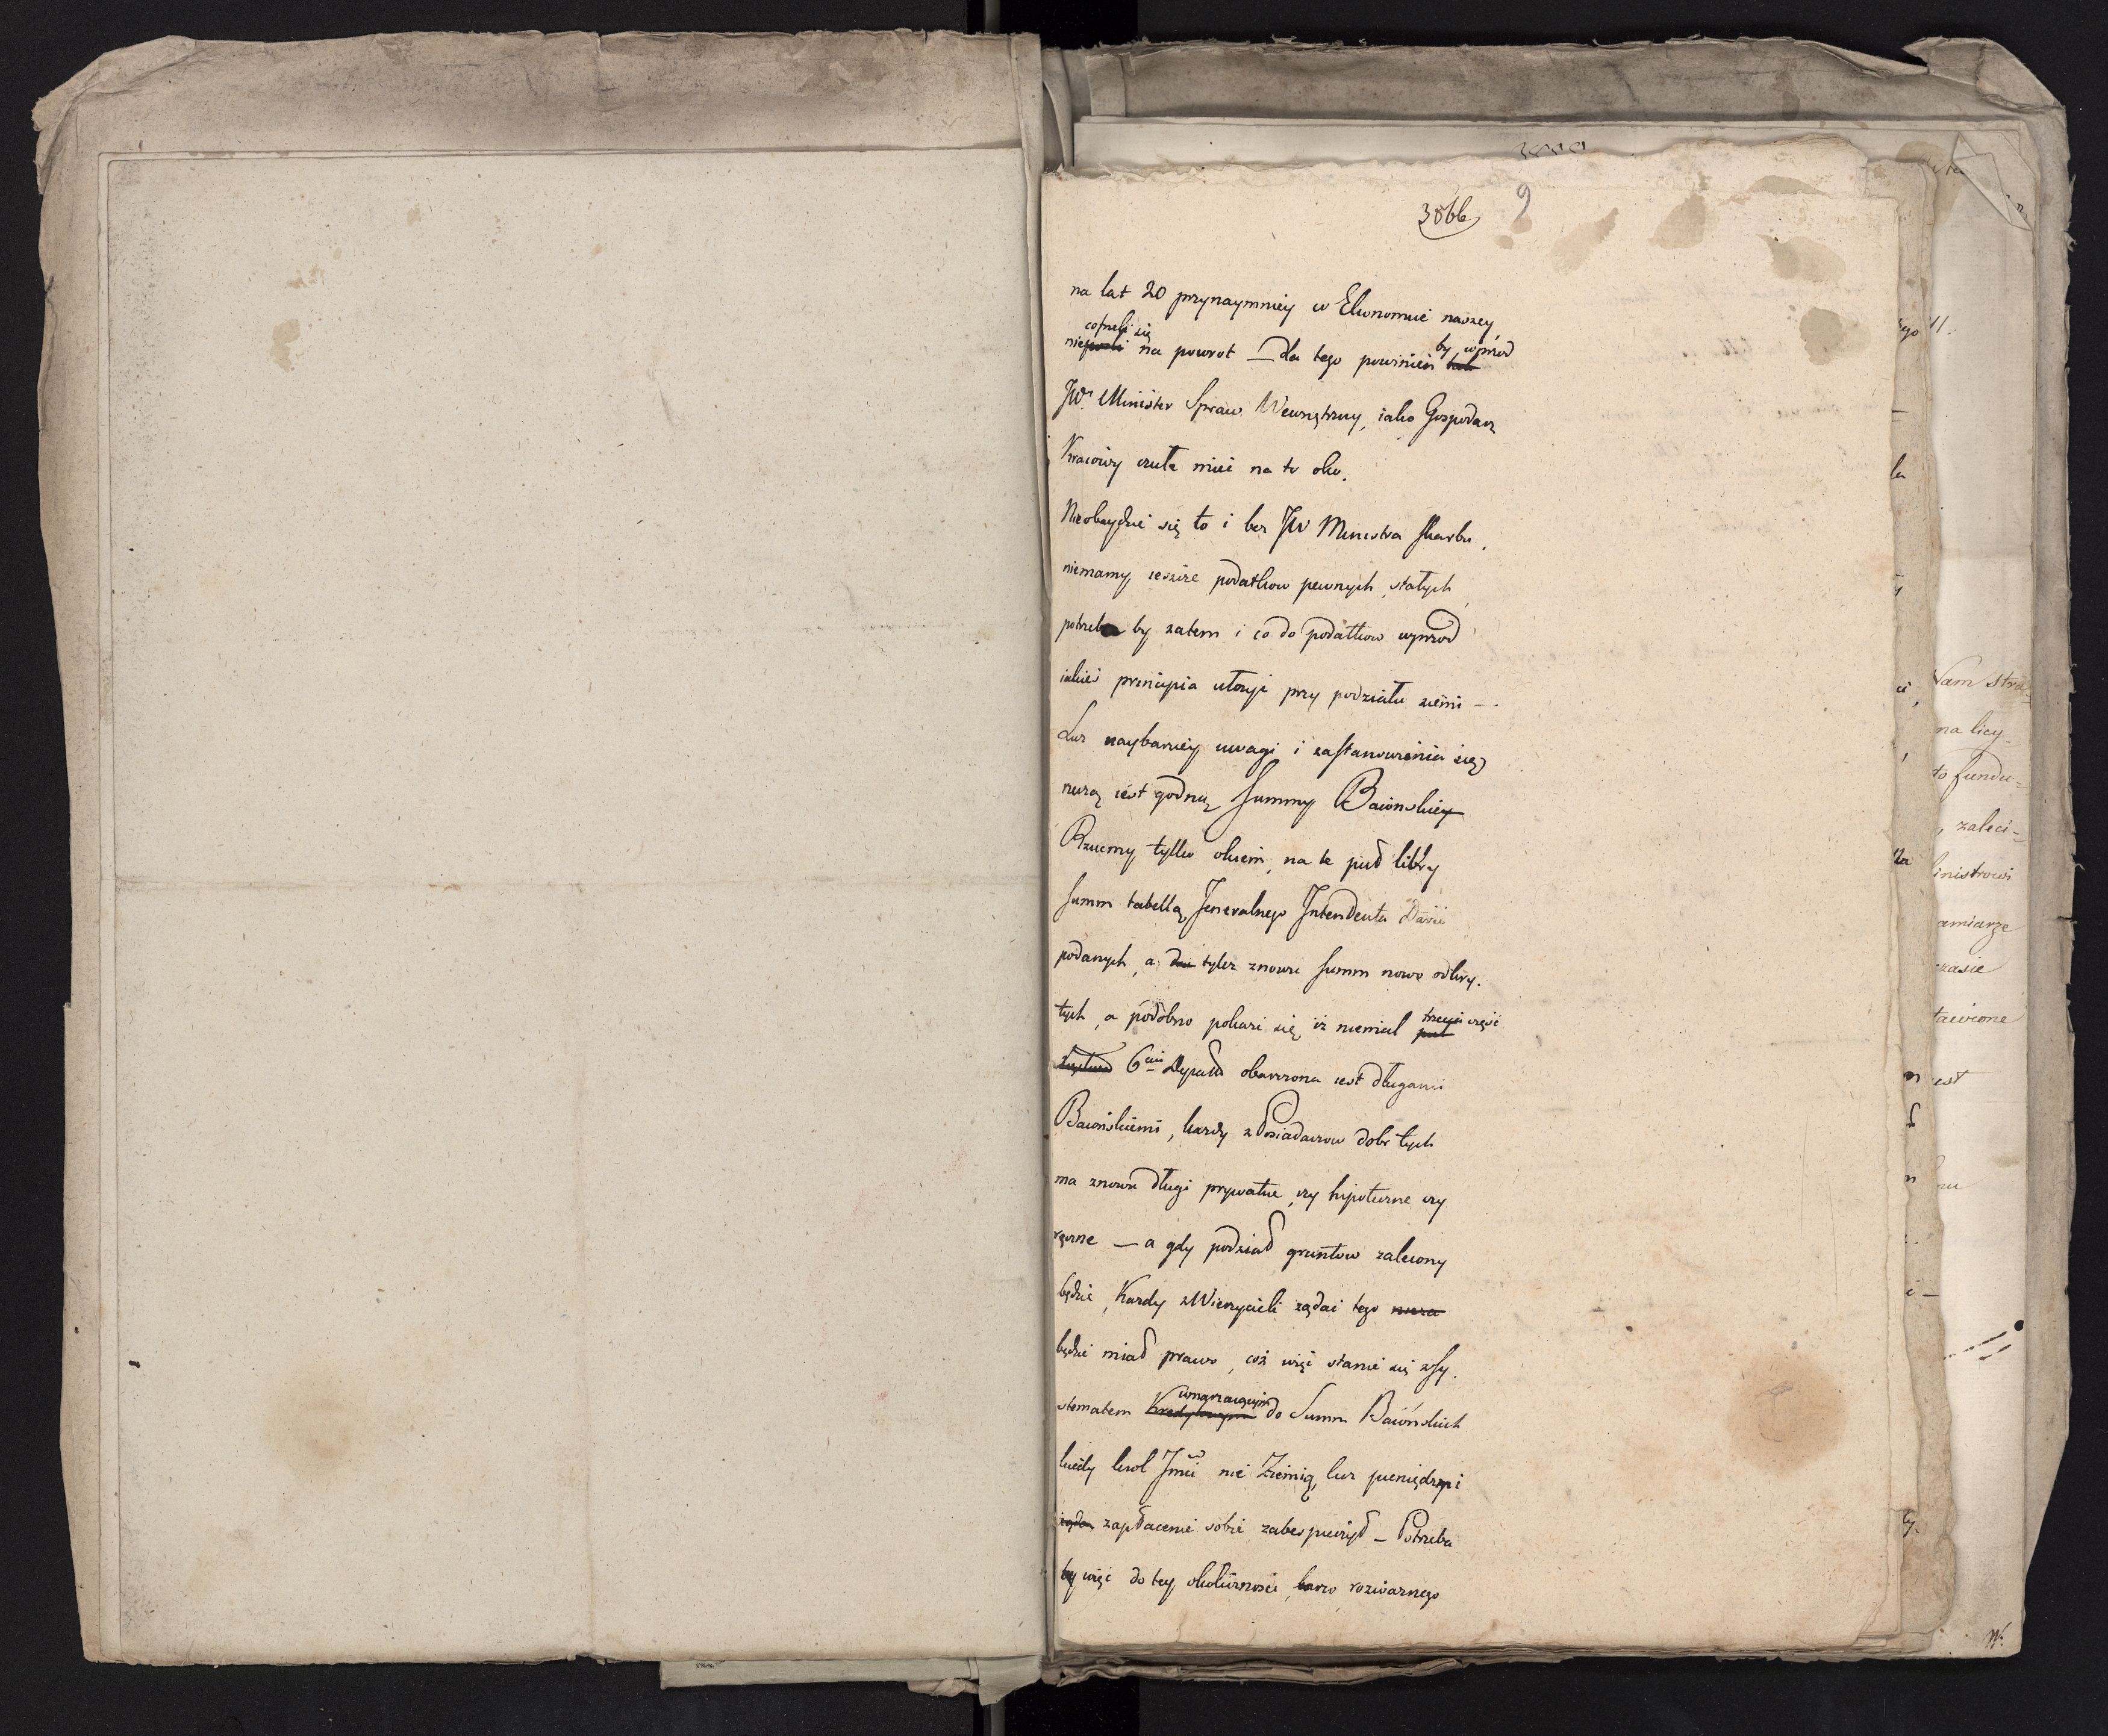 3866 9
na lat 20 przynaymniey w Ekonomii naszey
cofneli się
nieposzli na powrot — dla tego powinien by wprzod
JW. Minister Spraw Wewnętrzny, iako Gospodarz
Kraiowy czułe mieć na to oko.
Nieobeydzie się to i bez JW Ministra Skarbu.
niemamy ieszcze podatkow pewnych, stałych,
potrzeba by zatem i co do podatkow wprzod
iakieś principia ułożyć przy podziału ziemi —.
Lecz naybarziey uwagi i zastanowienia się
rzeczą iest godną Summy Baionskiey
Rzucmy tylko okiem, na te pod litery
Summ tabellą, Jeneralnego Intendenta
podanych, a tylez znowu Summ nowo odkry.
tych, a podobno pokaże się iż niemal trzecia część
6ciu Depart obarczona iest długami
Baiońskiemi, każdy z Posiadaczow dobr tych
ma znowu długi prywatne, czy hipoteczne czy
ręczne — a gdy podział gruntow zalecony
będzie, Kazdy z Wierzycieli żądać tego
będzie miał prawo, coż więc stanie się z Sy.
stematem Kredytowym do Summ Baiońskich
kiedy krol Jmć nie Ziemią, lecz pieniędzmi
zapłacenie sobie zabespieczył — Potrzeba
by więc do tey okoliczności, barzo rozważnego